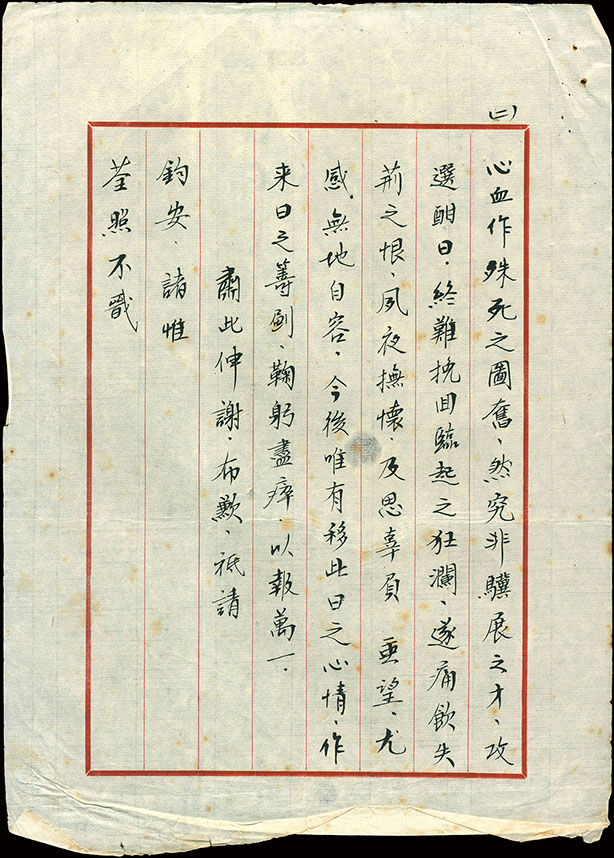 (二)
心血作殊死之圖奮、然究非驥展之才、攻
選酣日、終難挽回臨起之狂瀾、遂痛飲失
荊之恨、夙夜撫懷、及思辜負 垂望、尤
感無地自容、今後唯有移此日之心情、作
来日之籌劃、鞠躬盡瘁、以報萬一、
肅此伸謝、布歉、祗請
鈞安、諸惟
荃照不戩